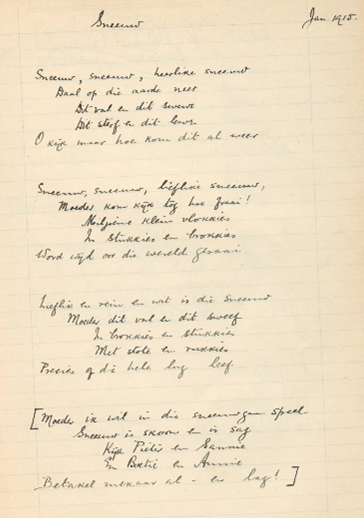 Sneeuw
Jan 1915.
Sneeuw, sneeuw, heerlike sneeuw
Daal op die aarde neer
Dit val en dit swewe
Dit sterf en dit lewe
O kyk maar hoe kom dit al weer
Sneeuw, sneeuw, lieflike sneeuw,
Moeder kom kyk tog hoe fraai!
klein vlokkies
In stukkies en brokkies
Word wyd oor die wereld gesaai
Lieflik en rein en wit is die sneeuw
Moeder dit val en dit sweef
In brokkies en stukkies
Met stote en rukkies
Precies of die hele lug leef
[Moeder ik wil in die sneeuw gaan speel
Sneeuw is skoon en is sag
Kyk Pieter en Sannie
En Bertie en Annie
Betakel mekaar al - en lag!]